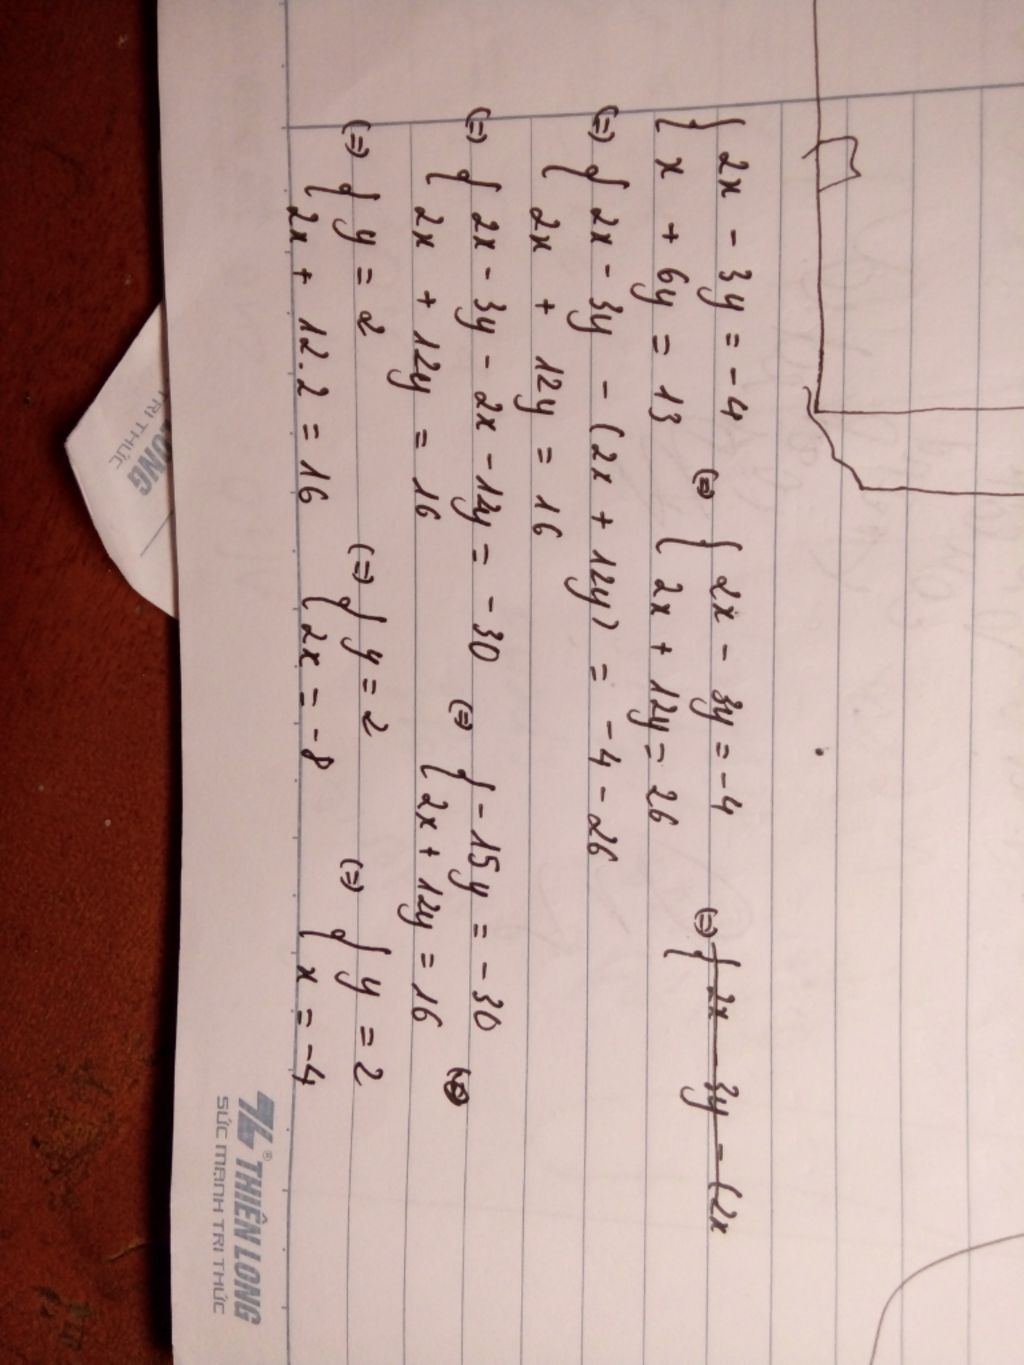 { 2x - 3y = -4
{ x + 6y = 13 (=) { 2x - 3y = -4
{ 2x + 12y = 26 (=) { 2x - 3y - (2x
(=) { 2x - 3y - (2x + 12y) = -4 - 26
{ 2x + 12y = 16
(=) { 2x - 3y - 2x - 12y = -30
{ 2x + 12y = 16 (=) { -15y = -30
{ 2x + 12y = 16 (=)
(=) { y = 2
{ 2x + 12.2 = 16 (=) { y = 2
{ 2x = -8 (=) { y = 2
{ x = -4
THIÊN LONG
SỨC MẠNH TRI THỨC
LONG
TRI THỨC